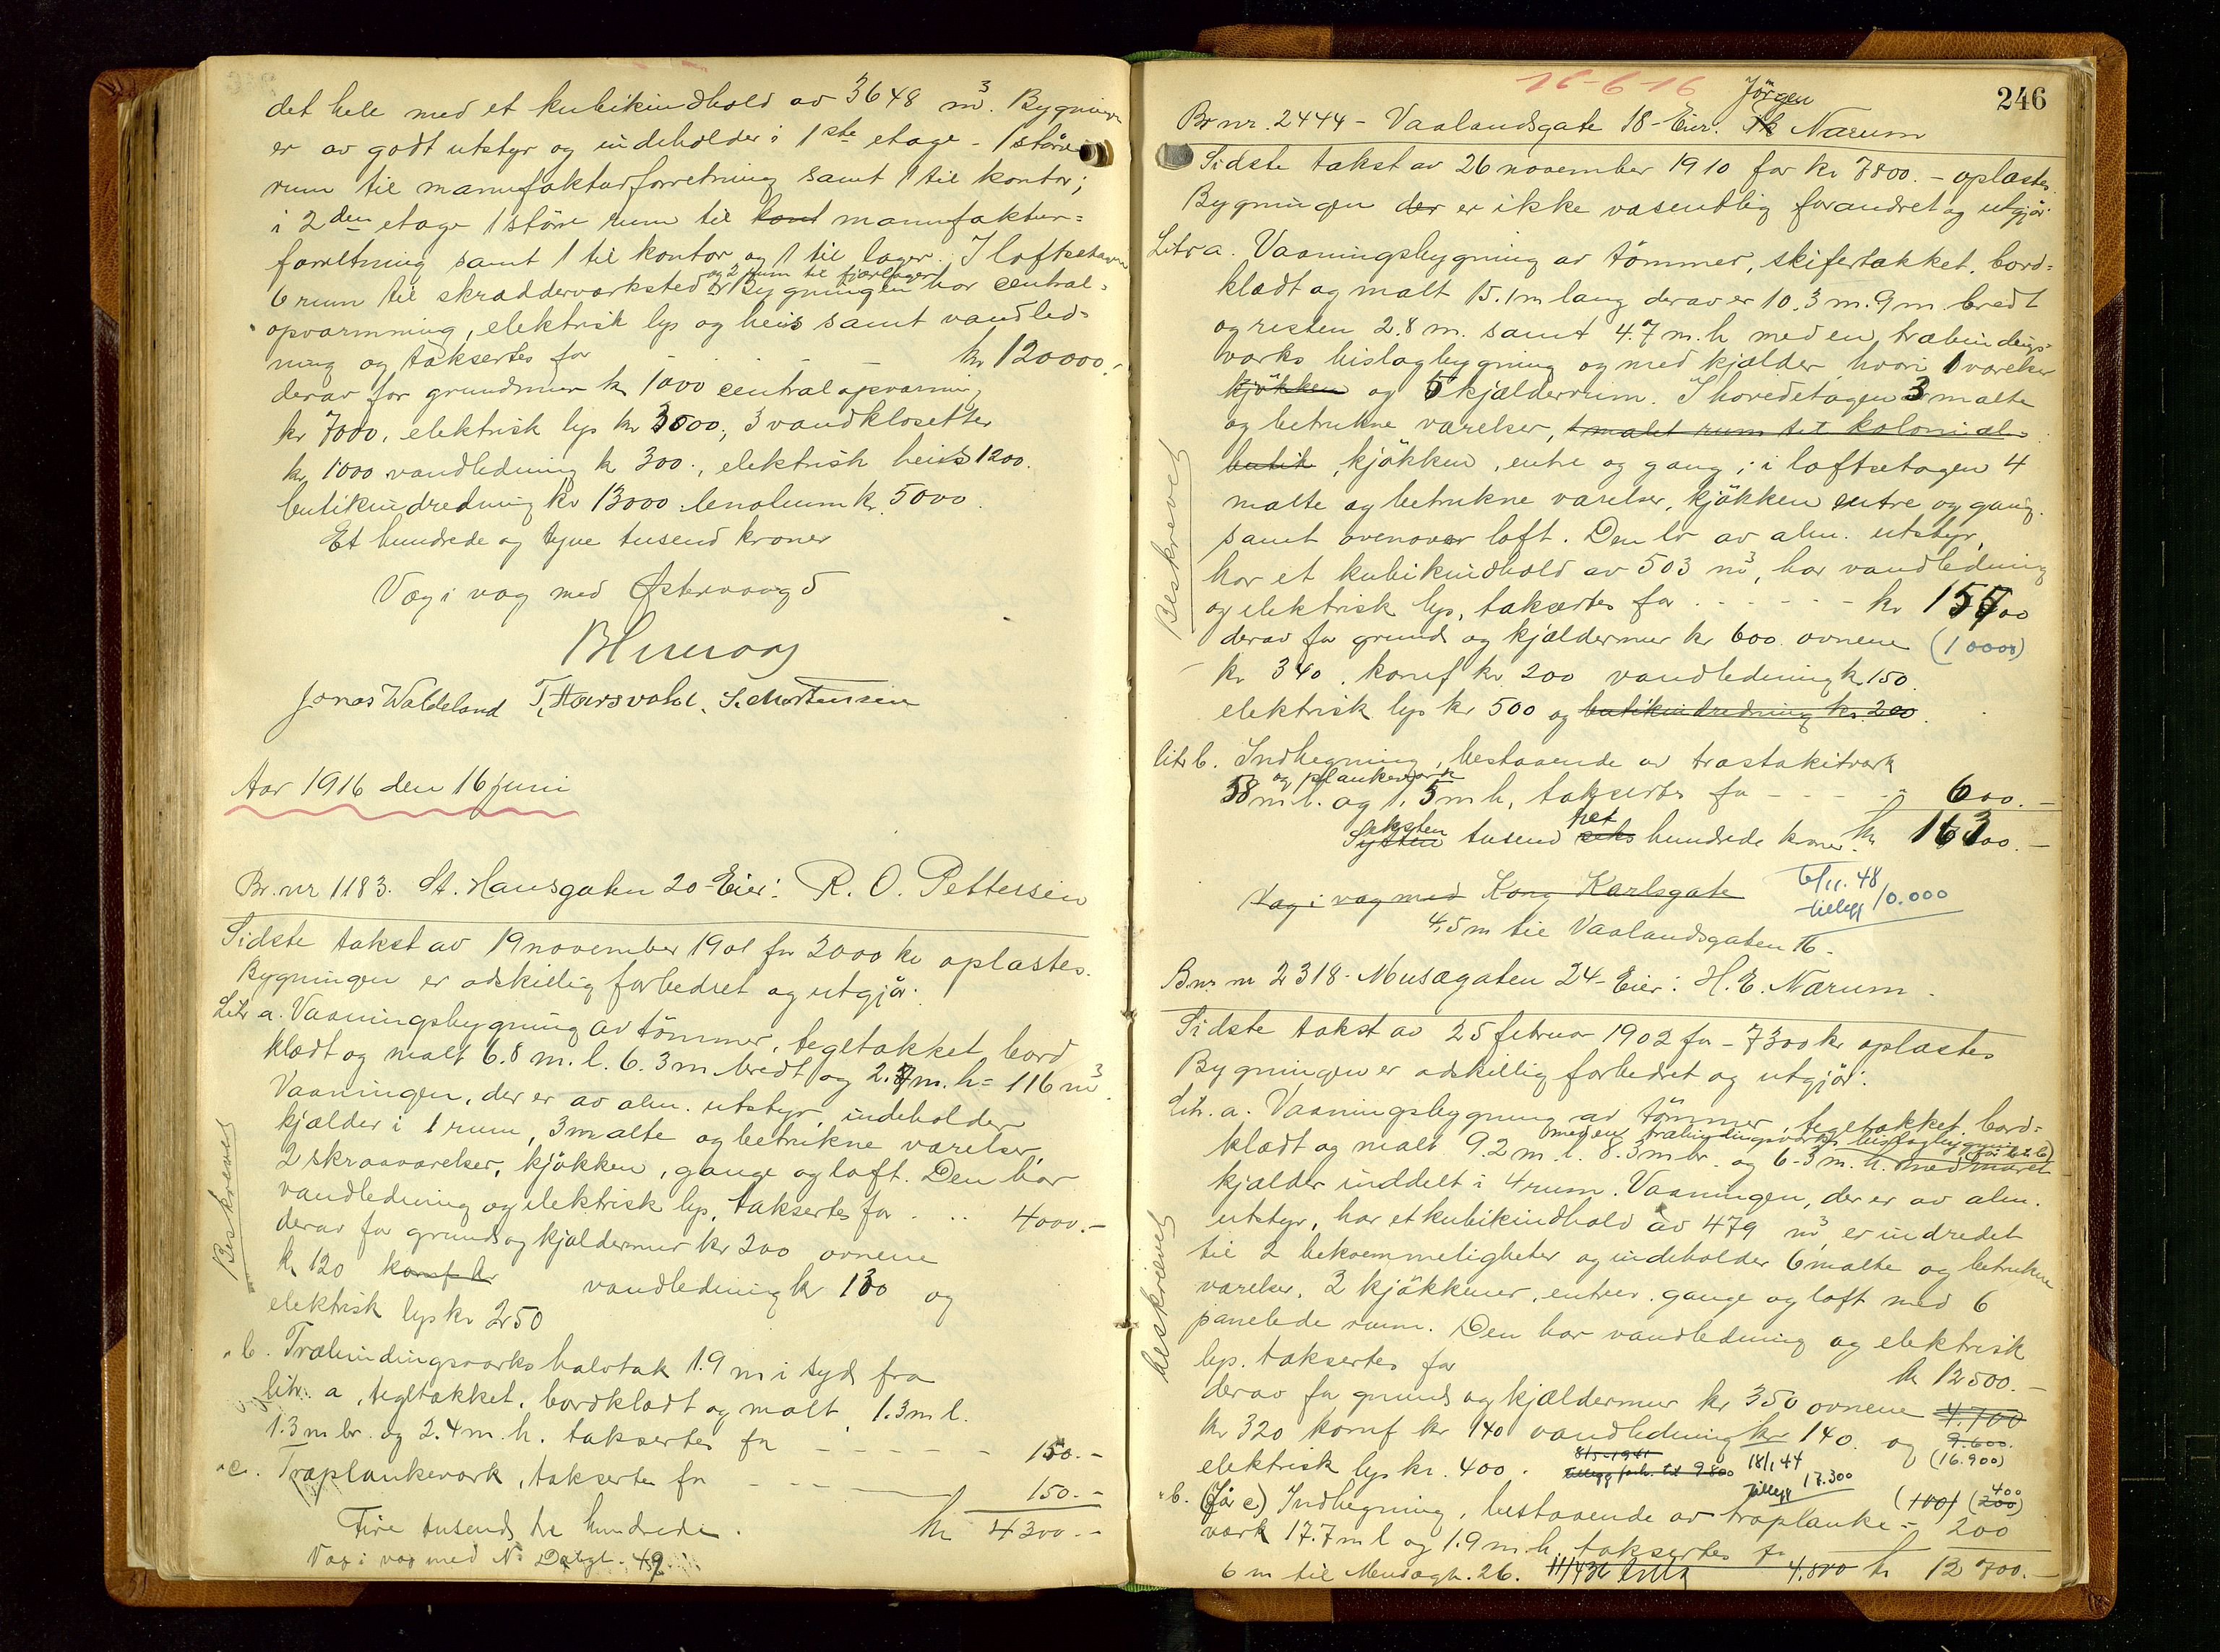 det hele med et kubikindhold av 3648 m³. Bygningen
er av godt utstyr og indeholder i 1ste etage - 1 större
rum til manufakturforretning samt 1 til kontor;
i 2den etage 1 större rum til kont manufaktur=
forretning samt 1 til kontor og 1 til lager. I loftsetagen
og 2 rum til fjærlager
6 rum til skrædderverksted Bygningen har central=
opvarmning, elektrisk lys og heis samt vandled=
ning og taksertes for - - - kr 120000.-
derav for grundmur kr 1000 centralopvarmning
kr 7000, elektrisk lys kr 3500; 3 vandklosetter
kr 1000 vandledning kr 300., elektrisk heis 1200.
butikindredning kr 13000 lenoleum kr. 5000.
Et hundrede og tyve tusend kroner
Væg i væg med Østervaag 5
Jonas Waldeland T. Hausvold. S. Mortensen
Aar 1916 den 16 juni
Br. nr 1183. St. Hansgaten 20 - Eier: R. O. Pettersen
Sidste takst av 19 november 1901 for 2000 kr oplæstes.
Bygningen er adskillig forbedret og utgjör:
Litr a. Vaaningsbygning av tömmer, tegltækket, bord
klædt og malt 6.8 m. l. 6.3 m bredt og 2.7 m. h = 116 m³.
Vaaningen, der er av alm. utstyr, indeholder
kjælder i 1 rum, 3 malte og betrukne værelser,
2 skraaværelser, kjökken, gange og loft. Den har
vandledning og elektrisk lys, taksertes for . .. 4000.-
derav for grund og kjældermur kr 200 ovnene
kr 120 komf kr vandledning kr 130 og
elektrisk lys kr 250
Beskrevet
" b. Træbindingsværks halvtak 1.9 m i syd fra
litr. a, tegltækket, bordklædt og malt 1.3 m l.
1.3 m br. og 2.4 m. h. taksertes for - - - - - 150.-
" c. Træplankeværk, taksertes for - - - 150.-
Fire tusend tre hundrede. kr 4300.-
Væg i væg med N. Dalgt. 49.
16-6-16
246
Jörgen
Br nr. 2444 - Vaalandsgate 18 - Eier. Th Nærum
Sidste takst av 26 november 1910 for kr 7800.- oplæstes.
Bygningen der er ikke væsentlig forandret og utgjör:
Litr a. Vaaningsbygning av tömmer, skifertækket, bord=
klædt og malt 15.1 m lang derav er 10.3 m. 9 m. bredt
og resten 2.8 m. samt 4.7 m. h med en træbindings=
værks bislagbygning og med kjælder hvori 1 værelse
kjökken og 5 kjælderrum. I hovedetagen 3 malte
og betrukne værelser, 1 malet rum til kolonial=
butik, kjökken, entre og gang; i loftsetagen 4
malte og betrukne værelser, kjökken entre og gang.
samt ovenover loft. Den er av alm. utstyr,
har et kubikindhold av 503 m³, har vandledning
og elektrisk lys, taksertes for - - - - - kr 15700
derav for grund og kjældermur kr 600. ovnene (10000)
kr 340, komf kr 200 vandledning kr 150
elektrisk lys kr 500 og butikindredning kr. 200.
Beskrevet
litr b. Indhegning, bestaaende av træstakitværk
og plankeværk
58 m l. og 1.5 m h, taksertes for - - - - - 600.-
seksten tre
Sytten tusend seks hundrede kroner. kr 16300.-
Væg i væg med Kong Karlsgate
6/11.48
tillegg 10.000
4,5 m til Vaalandsgaten 16 -
Bnr nr 2318 - Musægaten 24 - Eier: H. E. Nærum.
Sidste takst av 25 februar 1902 for - 7300 kr oplæstes
Bygningen er adskillig forbedret og utgjör:
Litr. a. Vaaningsbygning av tömmer, tegltækket, bord=
med en træbindingsværks bislagbygning
klædt og malt 9.2 m. l. 8.3 m br. og 6.3 m. h. med muret
kjælder inddelt i 4 rum. Vaaningen, der er av alm.
utstyr, har et kubikindhold av 479 m³, er indredet
til 2 bekvemmeligheter og indeholder 6 malte og betrukne
værelser, 2 kjökkener, entreer, gange og loft med 6
panelede rum. Den har vandledning og elektrisk
lys, taksertes for kr 12500.-
derav for grund og kjældermur kr 350 ovnene 4.700
kr 320 komf kr 140 vandledning kr 140. og 9.600.
8/5-1941
elektrisk lys kr. 400. tillegg forh. til 9800 18/1 44 (16.900)
tillegg 17.300
beskrevet
400
" b. (Før c) Indhegning, bestaaende av træplanke= (100) (200)
værk 17.7 m l og 1.9 m h, taksertes for 200
6 m til Musægt. 26. 11/4 36 4.800 kr 12700.-